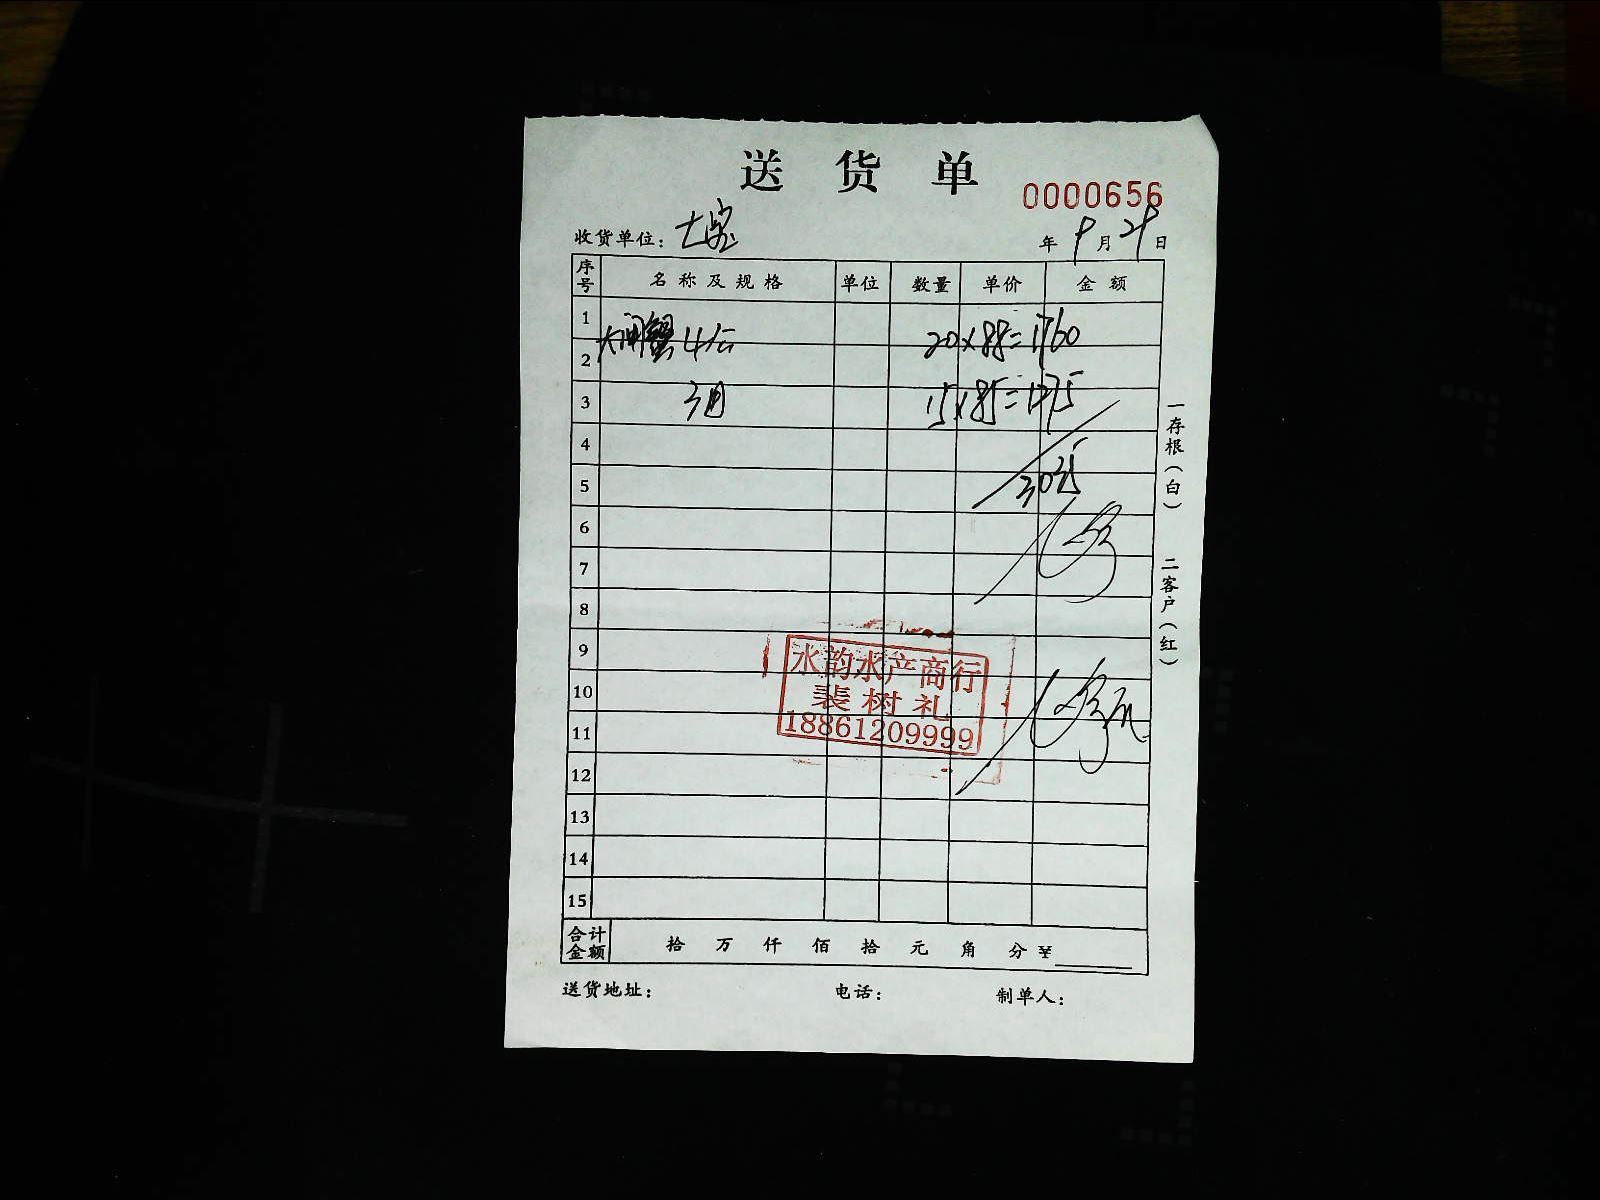 送货单
0000656
收货单位:
年 9 月 29 日
序号 名称及规格 单位 数量 单价 金额
1
大闸蟹 4公 20×88=1760
2
3 3母 15×85=1275
4
5 3035
6
7
8
9
10
11
12
13
14
15
水韵水产商行
裴树礼
18861209999
合计金额 拾 万 仟 佰 拾 元 角 分 ¥
送货地址: 电话: 制单人:
一存根(白) 二客户(红)